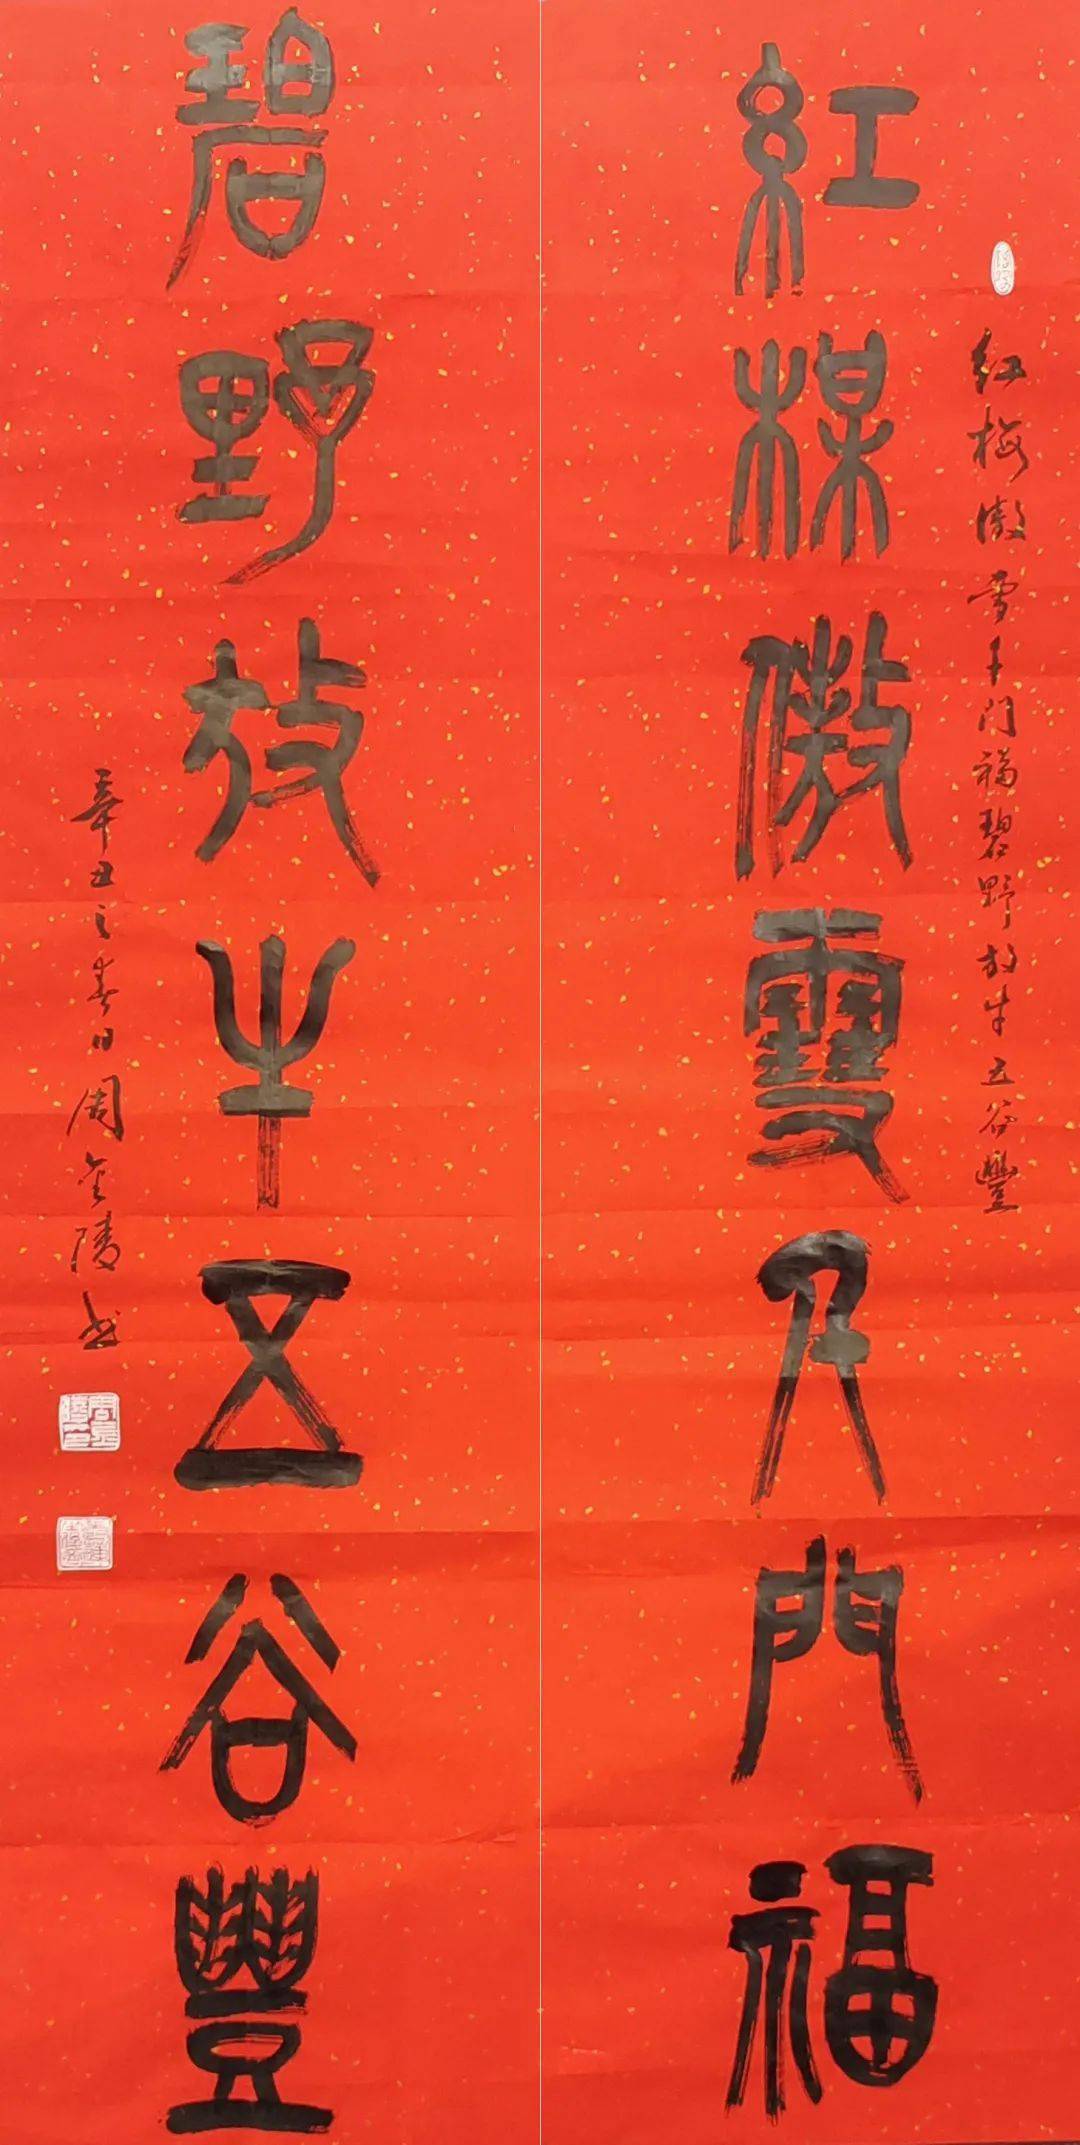 紅楳傲雪千門福
红梅傲雪千门福碧野放牛五谷豐
碧野放牛五谷豐
辛丑之春日周金陵书